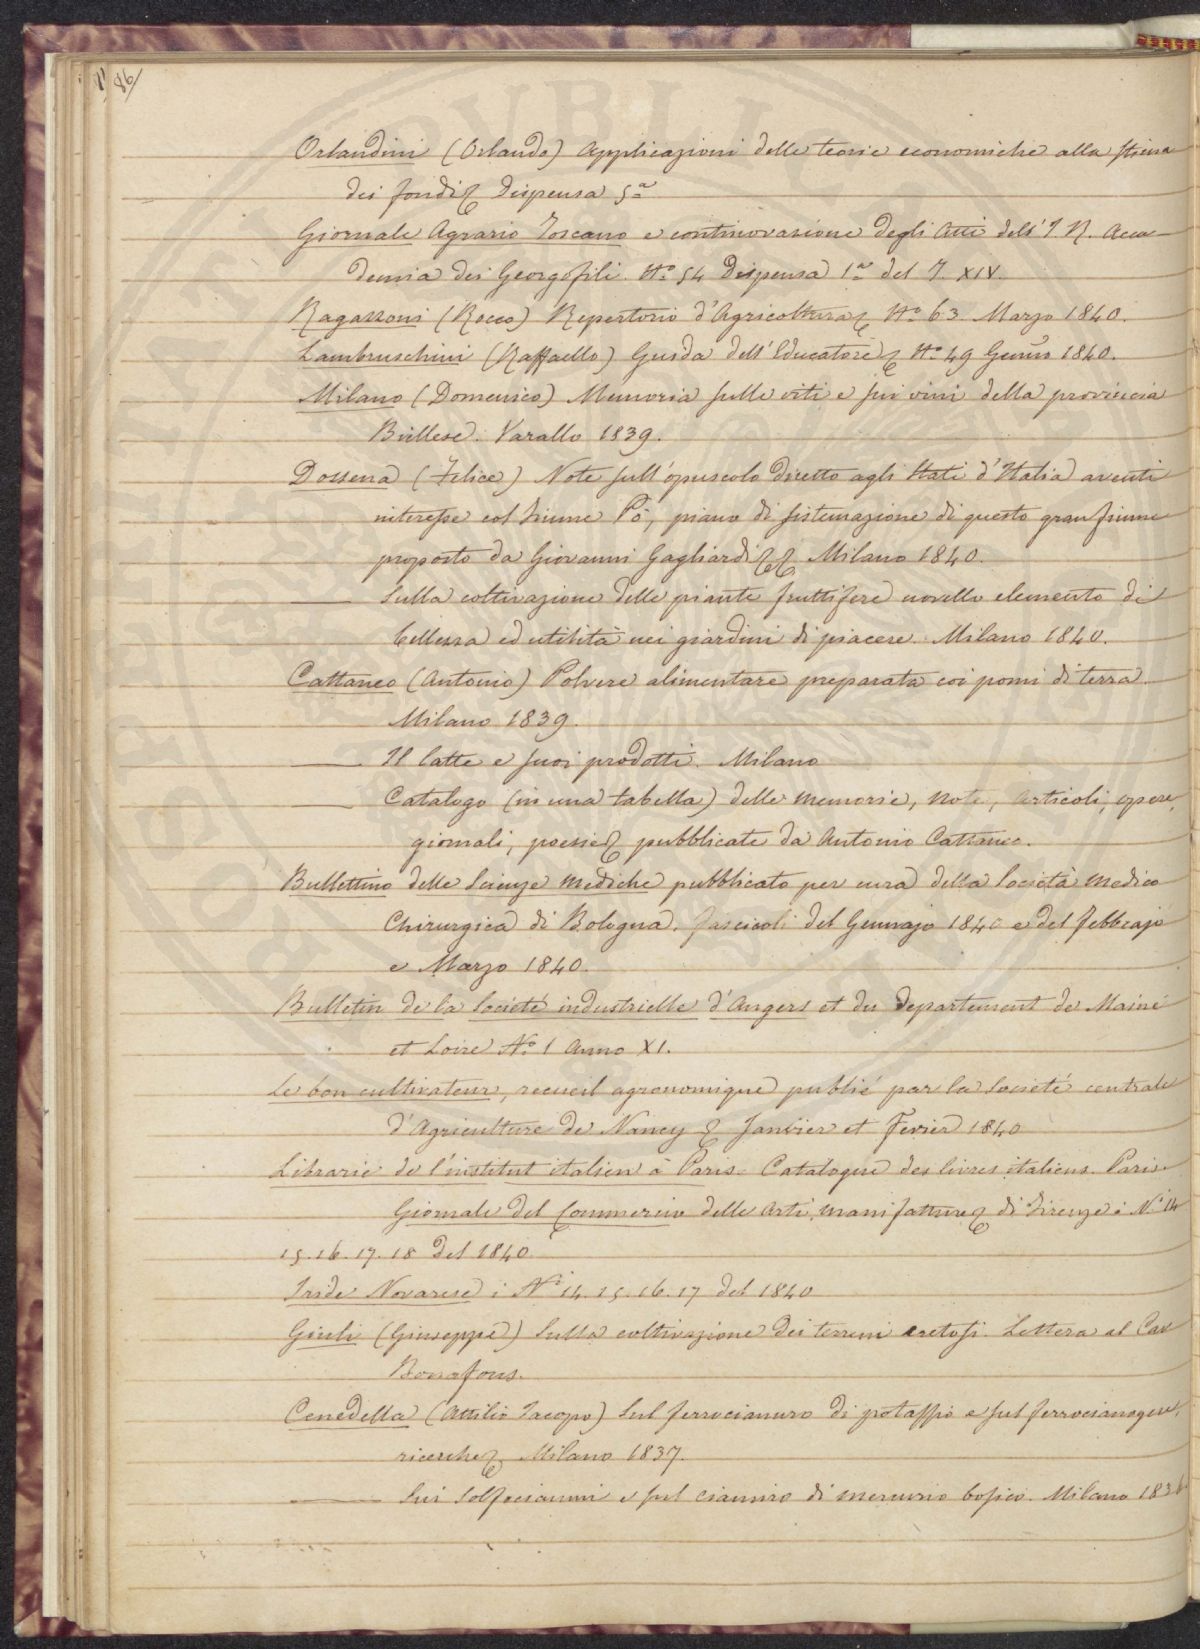 86/
Orlandini (Orlando) Applicazioni delle teorie economiche alla stima
dei fondi & Dispensa 5ª
Giornale Agrario Toscano e continovazione degli Atti dell' I. R. Acca-
demia dei Georgofili. Nº 54 Dispensa 1ª del T. XIV.
Ragazzoni (Rocco) Repertorio d'Agricoltura & Nº 63. Marzo 1840.
Lambruschini (Raffaello) Guida dell'Educatore & Nº 49 Gennº 1840.
Milano (Domenico) Memoria sulle viti e sui vini della provincia
Biellese. Varallo 1839.
Dossena (Felice) Note sull'opuscolo diretto agli Stati d'Italia aventi
interesse col Fiume Pò, piano di sistemazione di questo gran fiume
proposto da Giovanni Gagliardi && Milano 1840.
—— Sulla coltivazione delle piante fruttifere novello elemento di
bellezza ed utilità nei giardini di piacere. Milano 1840.
Cattaneo (Antonio) Polvere alimentare preparata coi pomi di terra.
Milano 1839.
—— Il latte e suoi prodotti. Milano
—— Catalogo (in una tabella) delle memorie, note, articoli, opere,
giornali, poesie & pubblicate da Antonio Cattaneo.
Bullettino delle Scienze Mediche pubblicato per cura della Società Medico
Chirurgica di Bologna. Fascicoli del Gennajo 1840 e del Febbrajo
e Marzo 1840.
Bulletin de la Societé industrielle d'Angers et du Departement de Maine
et Loire Nº 1 Anno XI.
Le bon cultivateur, recueil agronomique publié par la Societé centrale
d'Agriculture de Nancy & Janvier et Fevier 1840
Librarie de l'institut italien à Paris. Catalogue des livres italiens. Paris.
Giornale del Commercio delle Arti, manifatture & di Firenze i Nⁱ 14
15. 16. 17. 18 del 1840
Iride Novarese i Nⁱ 14. 15. 16. 17 del 1840
Giuli (Giuseppe) Sulla coltivazione dei terreni cretosi. Lettera al Cav
Bonafous.
Cenedella (Attilio Jacopo) Sul ferrocianuro di potassio e sul ferrocianogene,
ricerche & Milano 1837.
—— Sui Solfocianuri e sul cianuro di mercurio bosico. Milano 1836